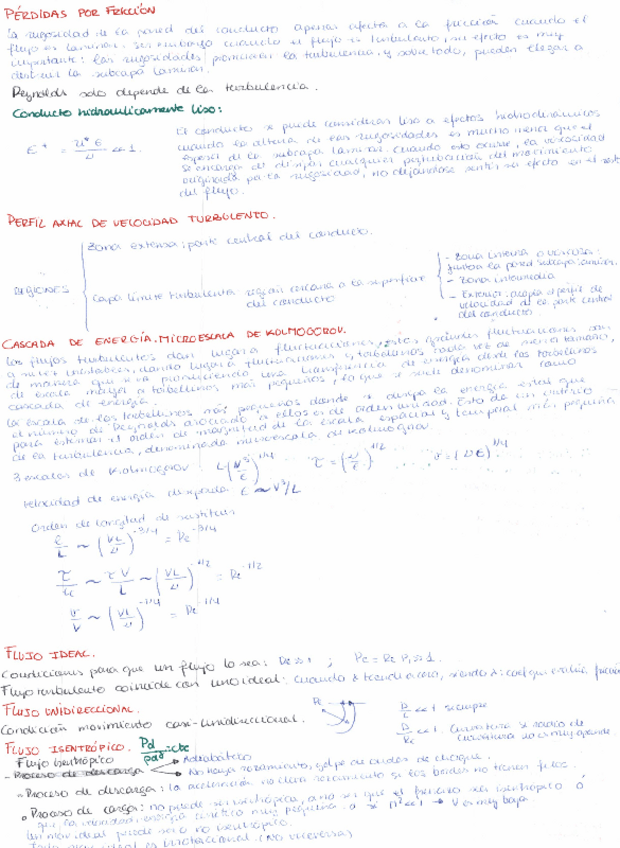 PÉRDIDAS POR FRICCIÓN
la rugosidad de la pared del conducto apenas afecta a la fricción cuando el
flujo es laminar. Sin embargo cuando el flujo es turbulento, su efecto es muy
importante: las rugosidades promueven la turbulencia, y sobre todo, pueden llegar a
destruir la subcapa laminar.
Reynolds solo depende de la turbulencia.
Conducto hidraulicamente liso:
El conducto se puede considerar liso a efectos hidrodinámicos
cuando la altura de las rugosidades es mucho menor que el
espesor de la subcapa laminar. Cuando esto ocurre, la viscosidad
se encarga de disipar cualquier perturbación del movimiento
originada por la rugosidad, no dejándose sentir su efecto en el resto
del flujo.
ε⁺ = u* ε / ν << 1.
PERFIL AXIAL DE VELOCIDAD TURBULENTO.
REGIONES
Zona extensa: parte central del conducto.
Capa límite turbulenta región cercana a la superficie
del conducto
- Zona interna o viscosa:
junto a la pared subcapa laminar.
- Zona intermedia
- Exterior: acopla el perfil de
velocidad al de la parte central
del conducto.
CASCADA DE ENERGÍA. MICROESCALA DE KOLMOGOROV.
Los flujos turbulentos dan lugar a fluctuaciones, estas grandes fluctuaciones son
a su vez inestables, dando lugar a fluctuaciones y torbellinos cada vez de menor tamaño,
de manera que se va produciendo una transferencia de energía desde los torbellinos
de escala mayor a torbellinos más pequeños, lo que se suele denominar como
cascada de energía.
La escala de los torbellinos más pequeños donde se disipa la energía es tal que
el número de Reynolds asociado a ellos es de orden unidad. Esto da un criterio
para estimar el orden de magnitud de la escala espacial y temporal más pequeña
de la turbulencia, denominada microescala de Kolmogorov.
3 escalas de Kolmogorov (ν³/ε)^1/4 τ = (ν/ε)^1/2 v = (νε)^1/4
Velocidad de energía disipada ε ~ V³/L
Orden de longitud de
ℓ/L ~ (VL/ν)^-3/4 = Re^-3/4
~ τV/L ~ (VL/ν)^-1/2 = Re^-1/2
v/V ~ (VL/ν)^-1/4 = Re^-1/4
FLUJO IDEAL.
Condiciones para que un flujo lo sea: Re >> 1 ; Pe = Re Pr >> 1.
Flujo turbulento coincide con uno ideal: cuando λ tiende a cero, siendo λ: coef que evalúa fricción
FLUJO UNIDIRECCIONAL.
Condición movimiento casi-unidireccional.
Rc
D/L << 1 siempre
D/Rc << 1. Curvatura si radio de
curvatura no es muy grande
FLUJO ISENTRÓPICO.
Flujo isentrópico
Adiabático
No haya rozamiento, golpe de ondas de choque.
Proceso de descarga: la aceleración no lleva rozamiento si los bordes no tienen filos.
Proceso de carga: no puede ser isentrópica, a no ser que el proceso sea isentrópico ó
que la velocidad, energía cinética muy pequeña → si M² << 1 → V es muy baja
Un mov. ideal puede ser o no isentrópico.